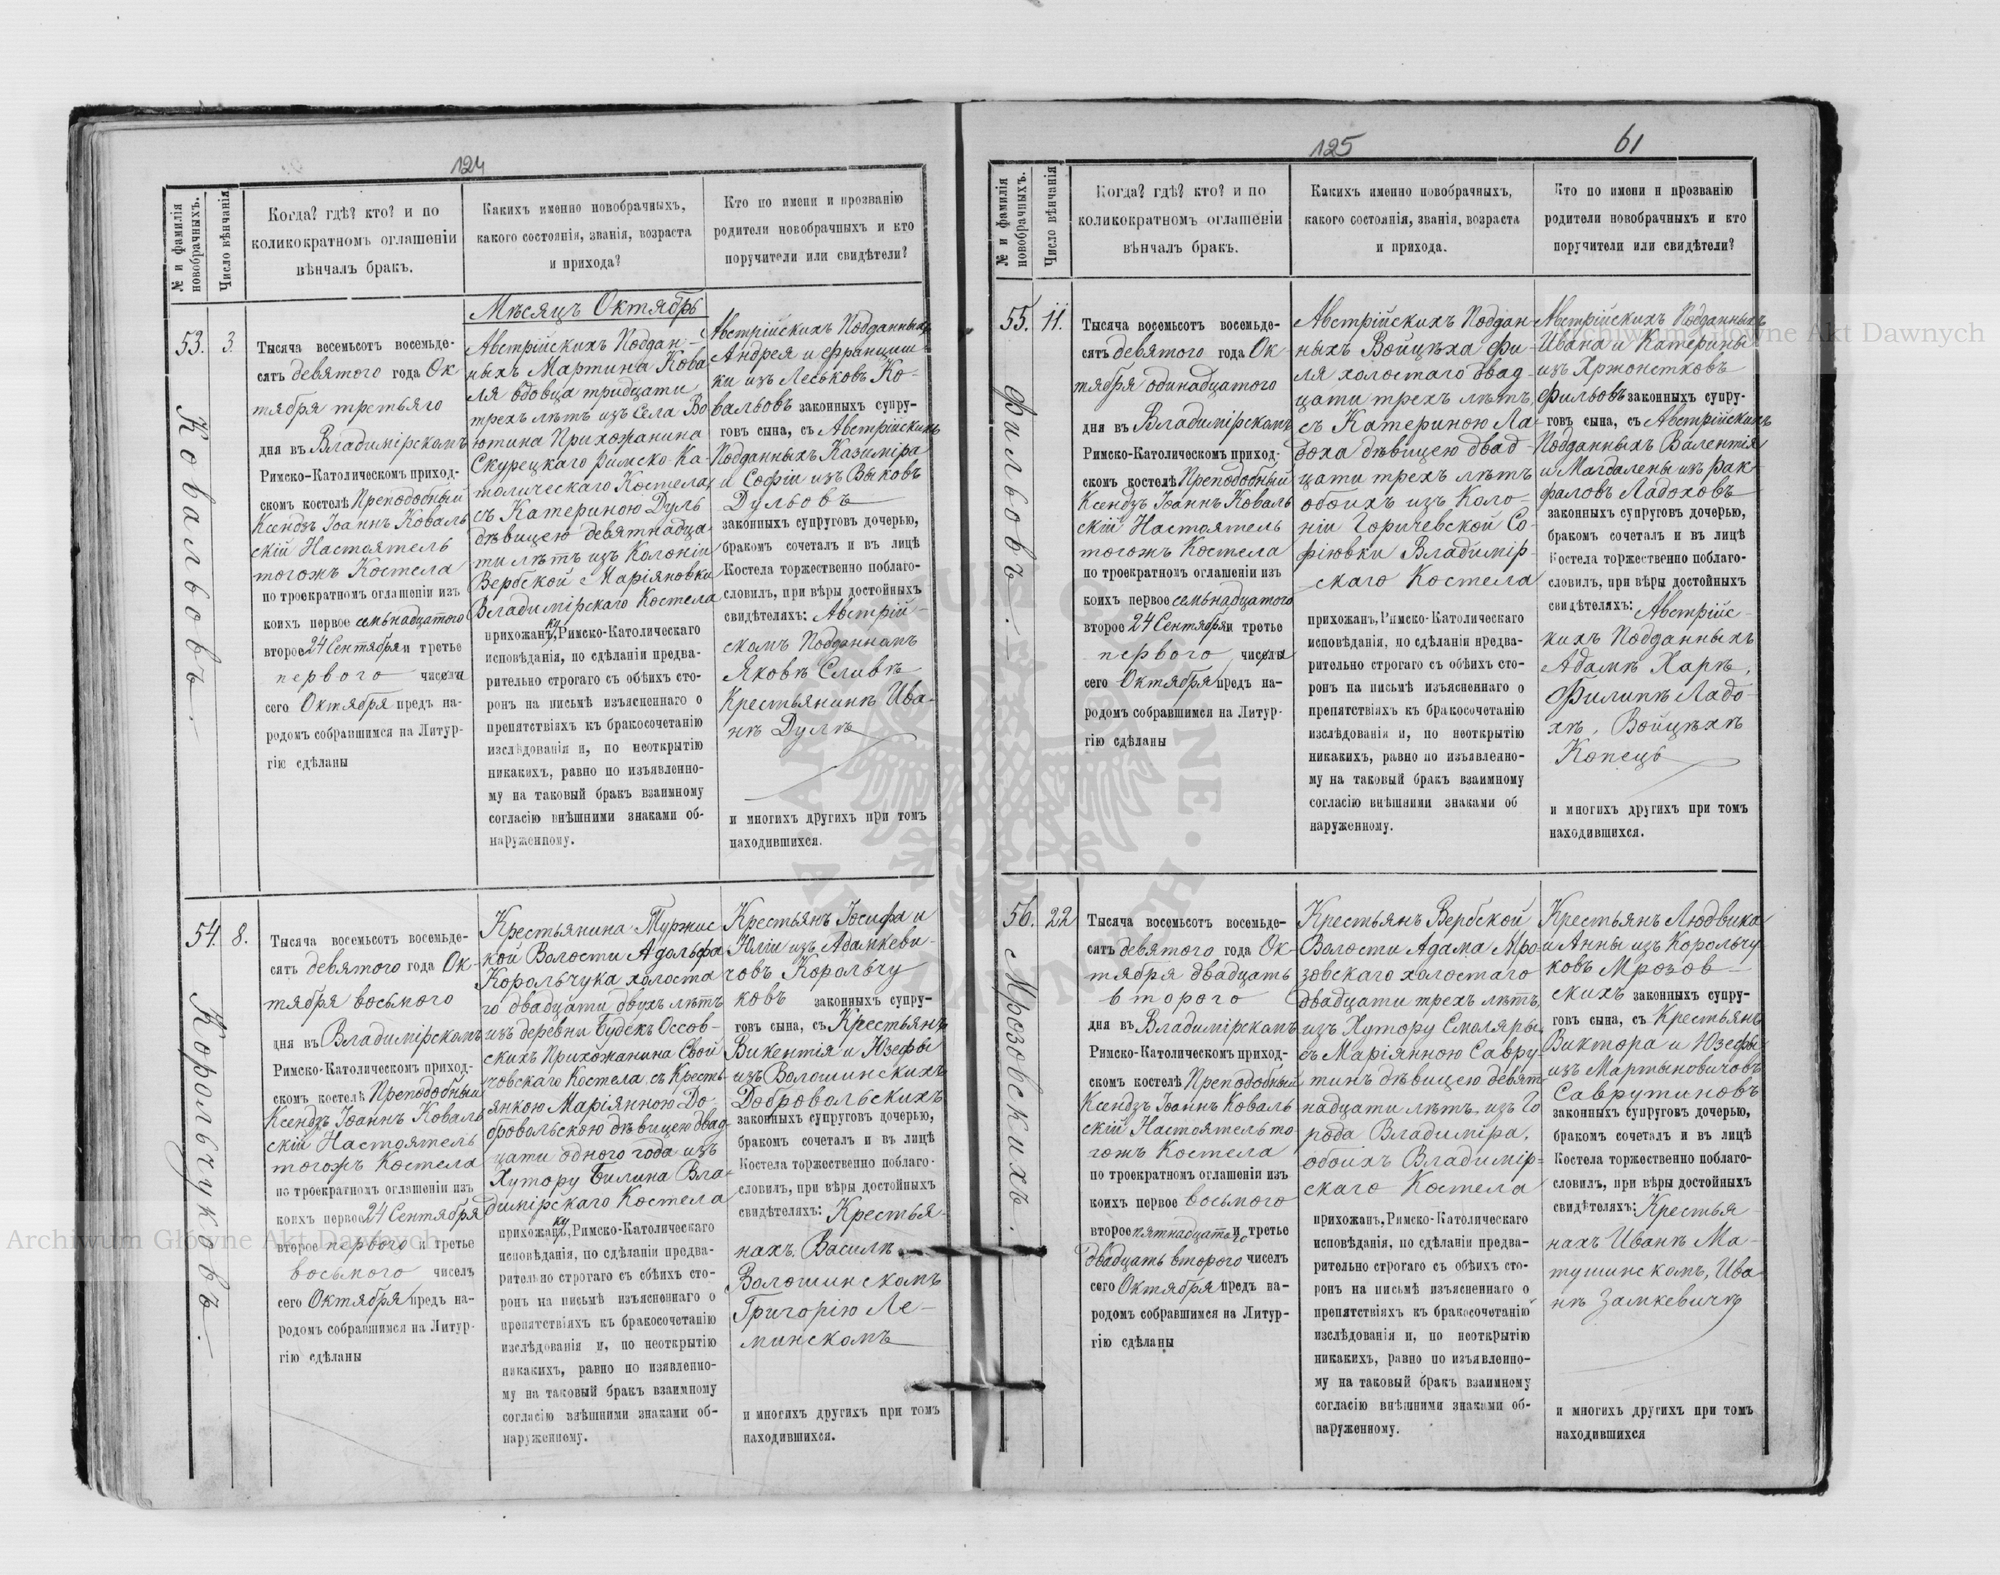 124
№ и фамилія новобрачныхъ.
Число вѣнчанія
Когда? гдѣ? кто? и по
коликократномъ оглашеніи
вѣнчалъ бракъ.
Какихъ именно новобрачныхъ,
какого состоянія, званія, возраста
и прихода?
Кто по имени и прозванію
родители новобрачныхъ и кто
поручители или свидѣтели?
53.
3.
Ковальовъ.
Тысяча весемьсотъ восемьде-
сятъ девятого года Ок
тября третьяго
дня въ Владимірскомъ
Римско-Католическомъ приход-
скомъ костелѣ Преподобный
Ксендзъ Іоаннъ Коваль
скій Настоятель
тогожъ Костела
по троекратномъ оглашеніи изъ
коихъ первое семьнадцатого
второе 24 Сентября и третье
первого числъ
сего Октября предъ на-
родомъ собравшимся на Литур-
гію сдѣланы
Мѣсяцъ Октябрь
Австрійскихъ Поддан-
ныхъ Мартина Кова
ля вдовца тридцати
трехъ лѣтъ изъ Села Во
ютина Прихожанина
Скурецкаго Римско-Ка-
толическаго Костела
съ Катериною Дуль
дѣвицею девятнадца
ти лѣтъ изъ Колоніи
Вербской Маріяновки
Владимірскаго Костела
прихожанъ, Римско-Католическаго
исповѣданія, по сдѣланіи предва-
рительно строгаго съ обѣихъ сто-
ронъ на письмѣ изъясненнаго о
препятствіяхъ къ бракосочетанію
изслѣдованія и, по неоткрытію
никакихъ, равно по изъявленно-
му на таковый бракъ взаимному
согласію внѣшними знаками об-
наруженному.
Австрійскихъ Подданныхъ
Андрея и Францишк-
ки изъ Леськовъ Ко-
вальовъ законныхъ супру-
говъ сына, съ Австрійскихъ
Подданныхъ Казиміра
и Софіи изъ Выковъ
Дульовъ
законныхъ супруговъ дочерью,
бракомъ сочеталъ и въ лицѣ
Костела торжественно поблаго-
словилъ, при вѣры достойныхъ
свидѣтеляхъ: Австрій-
скомъ Подданномъ
Яковѣ Сливѣ
Крестьянинѣ Ива-
нѣ Дулѣ
и многихъ другихъ при томъ
находившихся.
54.
8.
Корольчуковъ.
Тысяча восемьсотъ восемьде-
сятъ девятого года Ок-
тября восьмого
дня въ Владимірскомъ
Римско-Католическомъ приход-
скомъ костелѣ Преподобный
Ксендзъ Іоаннъ Коваль
скій Настоятель
тогожъ Костела
по троекратномъ оглашеніи изъ
коихъ первое 24 Сентября
второе первого и третье
восьмого чиселъ
сего Октября предъ на-
родомъ собравшимся на Литур-
гію сдѣланы
Крестьянина Туржис
кой Волости Адольфа
Корольчука холоста
го двадцати двухъ лѣтъ
изъ деревни Будекъ Оссов-
скихъ Прихожанина Свой
човскаго Костела, съ Кресть-
янкою Маріянною До-
бровольскою дѣвицею двад
цати одного года изъ
Хутору Билина Вла-
димірскаго Костела
прихожанъ, Римско-Католическаго
исповѣданія, по сдѣланіи предва-
рительно строгаго съ обѣихъ сто-
ронъ на письмѣ изъясненнаго о
препятствіяхъ къ бракосочетанію
изслѣдованія и, по неоткрытію
никакихъ, равно по изявленно-
му на таковый бракъ взаимному
согласію внѣшними знаками об-
наруженному.
Крестьянъ Іосифа и
Юліи изъ Адамкеви-
човъ Корольчу
ковъ законныхъ супру-
говъ сына, съ Крестьянъ
Викентія и Юзефы
изъ Волошинскихъ
Добровольскихъ
законныхъ супруговъ дочерью,
бракомъ сочеталъ и въ лицѣ
Костела торжественно поблаго-
словилъ, при вѣры достойныхъ
свидѣтеляхъ: Крестья-
нахъ Василѣ
Волошинскомъ
Григорію Ле-
минскомъ
и многихъ другихъ при томъ
находившихся.
125
61
№ и фамилія новобрачныхъ.
Число вѣнчанія
Когда? гдѣ? кто? и по
коликократномъ оглашеніи
вѣнчалъ бракъ.
Какихъ именно новобрачныхъ,
какого состоянія, званія, возраста
и прихода.
Кто по имени и прозванію
родители новобрачныхъ и кто
поручители или свидѣтели?
55.
11.
Фильовъ.
Тысяча восемьсотъ восемьде-
сятъ девятого года Ок
тября одинадцатого
дня въ Владимірскомъ
Римско-Католическомъ приход-
скомъ костелѣ Преподобный
Ксендзъ Іоаннъ Коваль
скій Настоятель
тогожъ Костела
по троекратномъ оглашеніи изъ
коихъ первое семьнадцатого
второе 24 Сентября и третье
первого числъ
сего Октября предъ на-
родомъ собравшимся на Литур-
гію сдѣланы
Австрійскихъ Поддан-
ныхъ Войцѣха Фи-
ля холостаго двад-
цати трехъ лѣтъ
съ Катериною Ла-
доха дѣвицею двад-
цати трехъ лѣтъ
обоихъ изъ Коло-
ніи Горичевской Со-
фіювки Владимір-
скаго Костела
прихожанъ, Римско-Католическаго
исповѣданія, по сдѣланіи предва-
рительно строгаго съ обѣихъ сто-
ронъ на письмѣ изъясненнаго о
препятствіяхъ къ бракосочетанію
изслѣдованія и, по неоткрытію
никакихъ, равно по изъявленно-
му на таковый бракъ взаимному
согласію внѣшними знаками об
наруженному.
Австрійскихъ Подданныхъ
Ивана и Катерины
изъ Хржонстковъ
Фильовъ законныхъ супру-
говъ сына, съ Австрійскихъ
Подданныхъ Валентія
и Магдалены изъ Рак
фаловъ Ладоховъ
законныхъ супруговъ дочерью,
бракомъ сочеталъ и въ лицѣ
Костела торжественно поблаго-
словилъ, при вѣры достойныхъ
свидѣтеляхъ: Австрійс-
кихъ Подданныхъ
Адамѣ Харѣ,
Филипѣ Ладо-
хѣ, Войцѣхѣ
Копецъ
и многихъ другихъ при томъ
находившихся.
56.
22
Мрозовскихъ.
Тысяча восемьсотъ восемьде-
сятъ девятого года Ок-
тября двадцать
второго
дня въ Владимірскомъ
Римско-Католическомъ приход-
скомъ костелѣ Преподобный
Ксендзъ Іоаннъ Коваль
скій Настоятель то-
гожъ Костела
по троекратномъ оглашеніи изъ
коихъ первое восьмого
второе пятнадцатого и третье
двадцать второго чиселъ
сего Октября предъ на-
родомъ собравшимся на Литур-
гію сдѣланы
Крестьянъ Вербской
Волости Адама Мро-
зовскаго холостаго
двадцати трехъ лѣтъ,
изъ Хутору Смоляры
съ Маріянною Савру-
тинъ дѣвицею девят-
надцати лѣтъ изъ Го
рода Владиміра,
обоихъ Владимір-
скаго Костела
прихожанъ, Римско-Католическаго
исповѣданія, по сдѣланіи предва-
рительно строгаго съ обѣихъ сто-
ронъ на письмѣ изъясненнаго о
препятствіяхъ къ бракосочетанію
изслѣдованія и, по неоткрытію
никакихъ, равно по изъявленно-
му на таковый бракъ взаимному
согласію внѣшними знаками об-
наруженному.
Крестьянъ Людвика
и Анны изъ Корольчу
ковъ Мрозов-
скихъ законныхъ супру-
говъ сына, съ Крестьянъ
Виктора и Юзефы
изъ Мартыновичовъ
Саврутиновъ
законныхъ супруговъ дочерью,
бракомъ сочеталъ и въ лицѣ
Костела торжественно поблаго-
словилъ, при вѣры достойныхъ
свидѣтеляхъ: Крестья-
нахъ Иванѣ Ма-
тушинскомъ, Ива
нѣ Замкевичѣ
и многихъ другихъ при томъ
находившихся
Archiwum Główne Akt Dawnych
Archiwum Główne Akt Dawnych